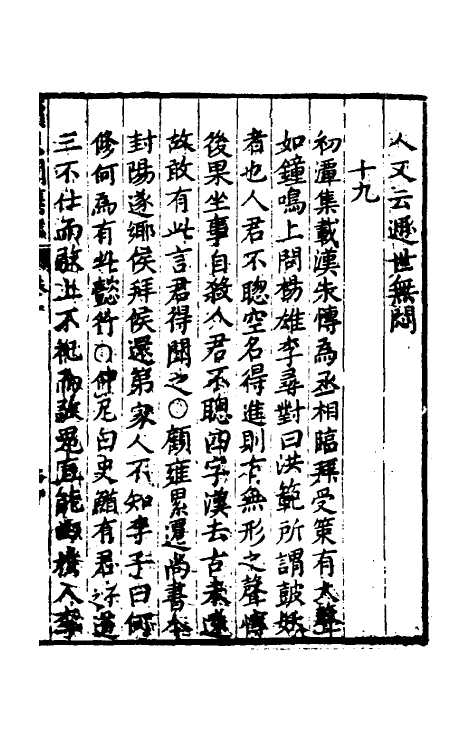 人又云遯世無悶
十九
初潭集載漢朱愽為丞相臨拜受策有大聲
如鐘鳴上問楊雄李尋對曰洪範所謂皷妖
者也人君不聰空名得進則有無形之聲愽
後果坐事自殺人君不聰四字漢去古未遠
故敢有此言君得聞之○顧雍累遷尚書令
封陽遂鄉侯拜侯還第家人不知李子曰何
修何為有此懿行○仲尼曰史鰌有君子之道
三不仕而敬上不祀而敬鬼直能曲於人李